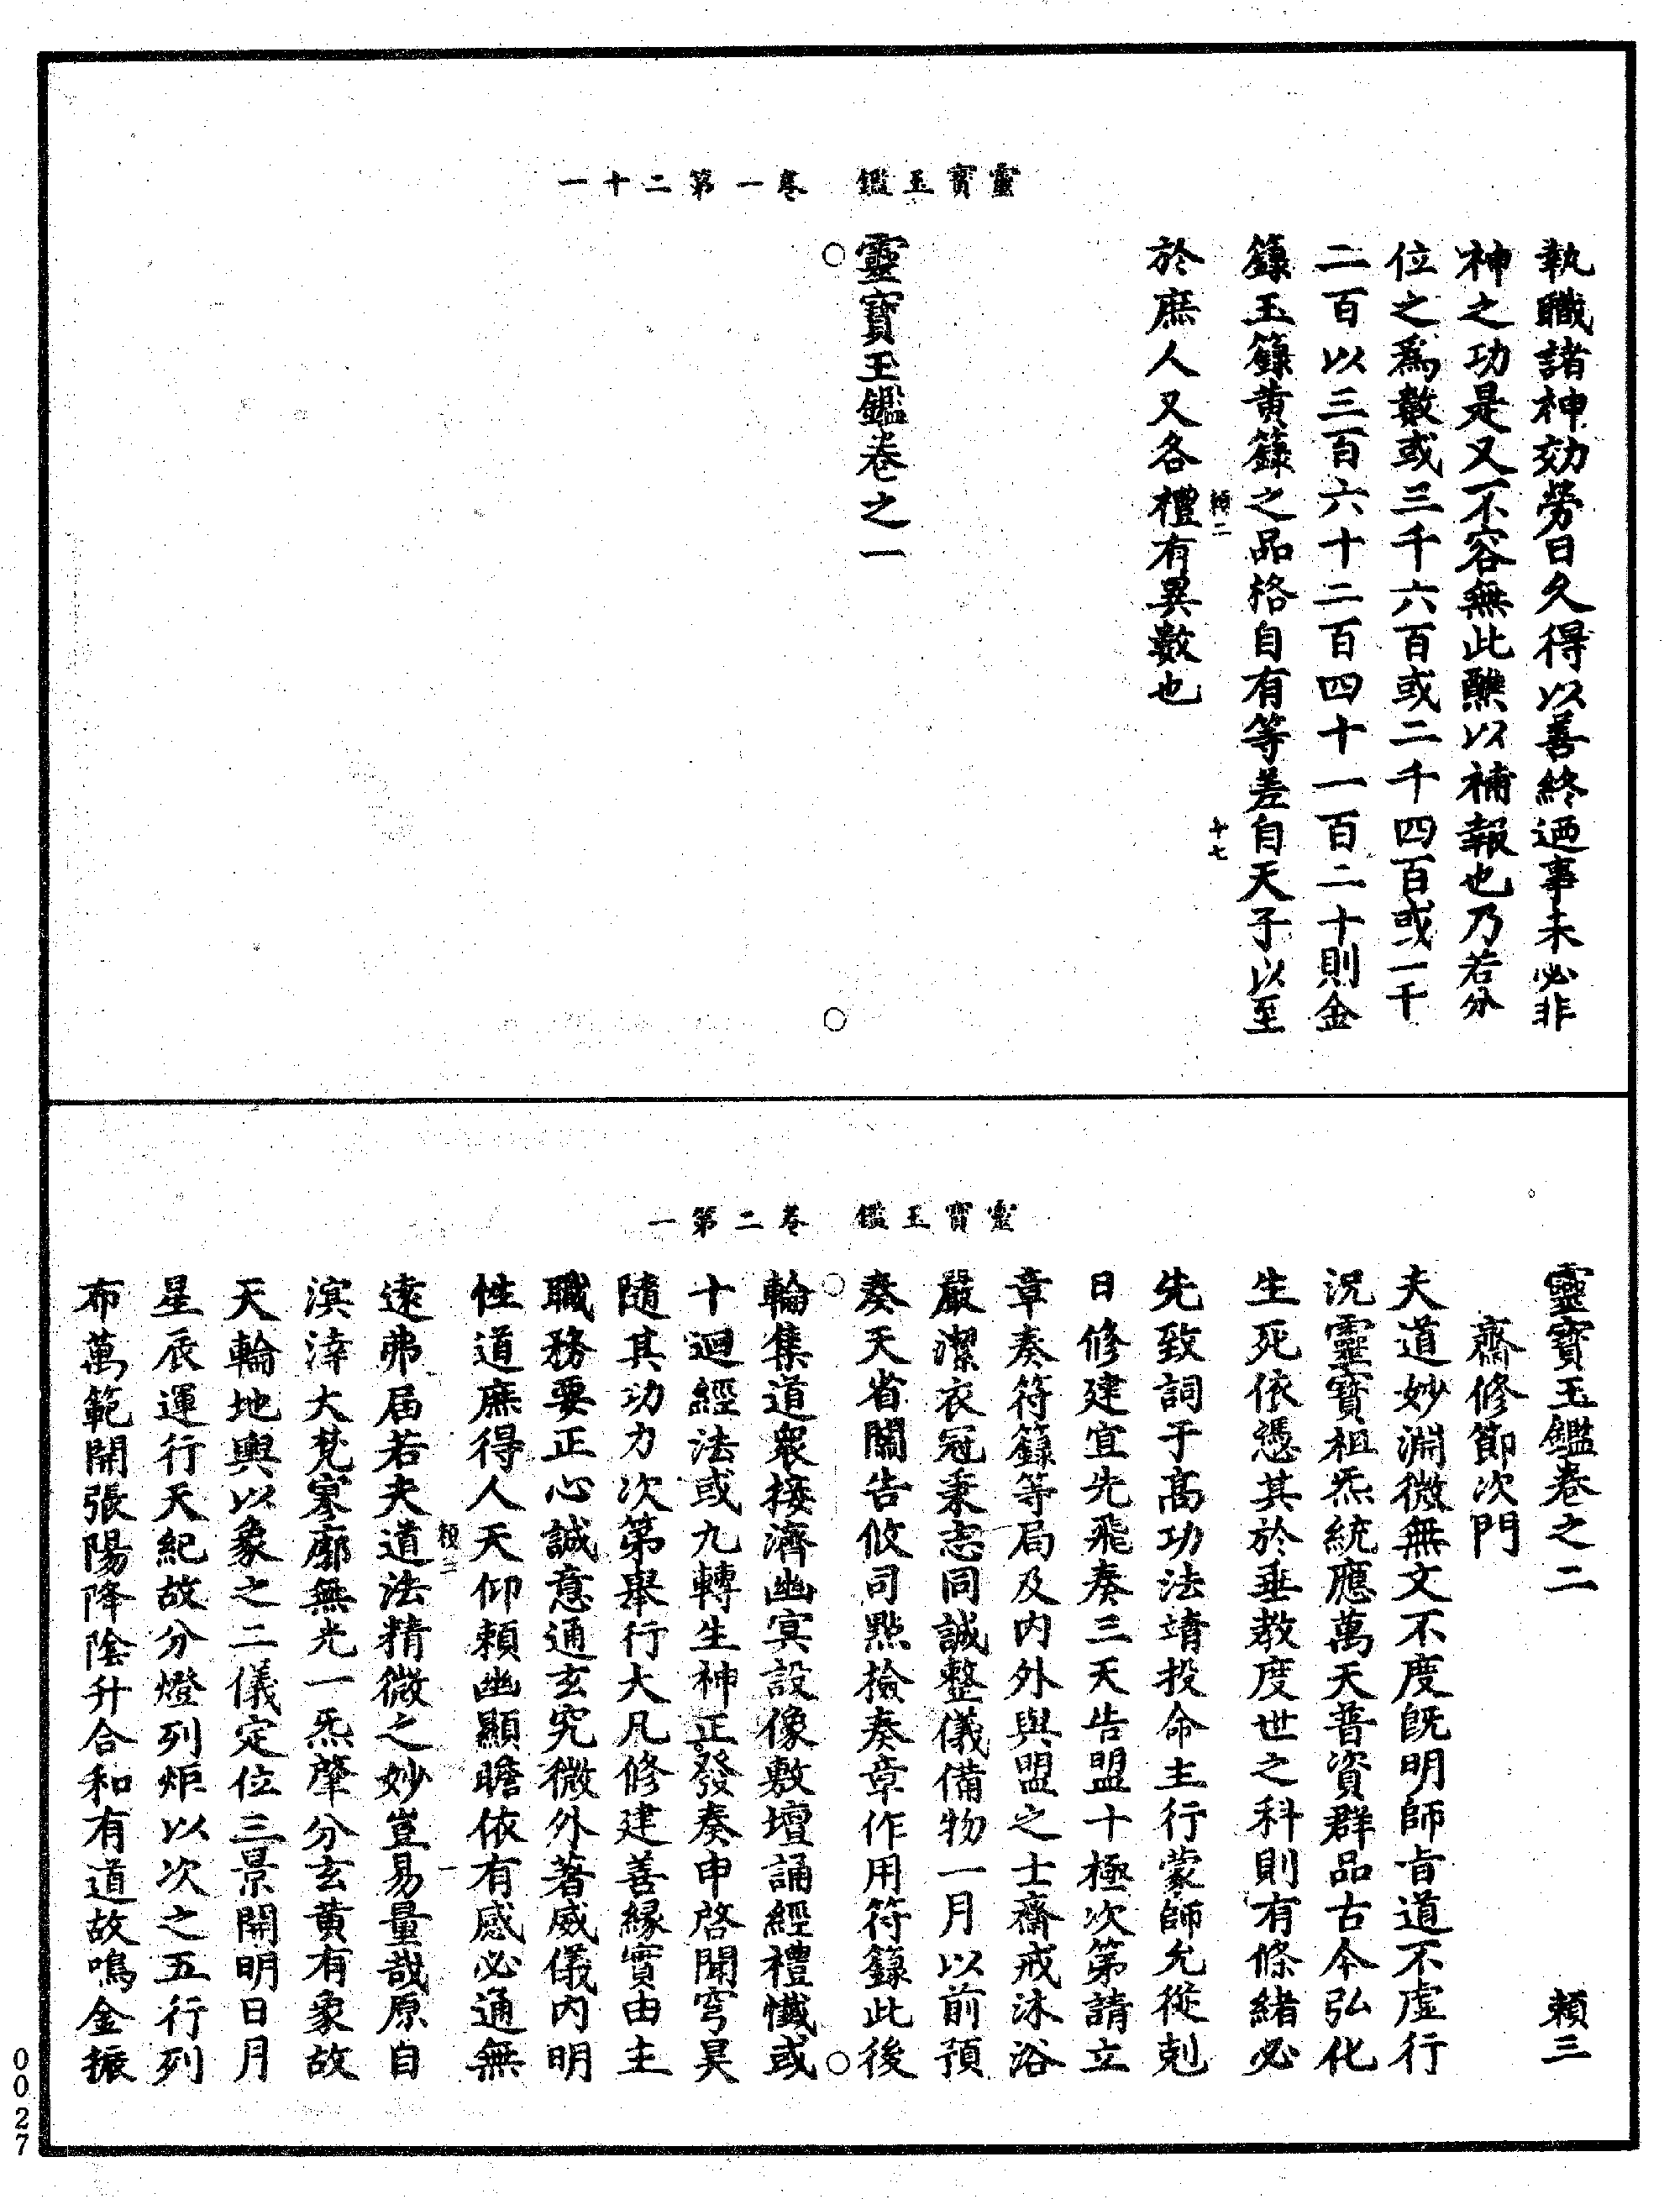 靈寶玉鑑　卷一第二十一
執職諸神効勞日久得以善終迺事未必非
神之功是又不容無此醮以補報也乃若分
位之爲數或三千六百或二千四百或一千
二百以三百六十二百四十一百二十則金
籙玉籙黃籙之品格自有等差自天子以至
頼二　十七
於庶人又各禮有異數也
靈寶玉鑑卷之一
靈寶玉鑑　卷二第一
靈寶玉鑑卷之二　頼三
齋修節次門
夫道妙淵微無文不度旣明師旨道不虛行
況靈寶祖炁統應萬天普資群品古今弘化
生死依憑其於垂教度世之科則有條緒必
先致詞于高功法靖投命主行蒙師允從剋
日修建宜先飛奏三天告盟十極次第請立
章奏符籙等局及內外與盟之士齋戒沐浴
嚴潔衣冠秉志同誠整儀備物一月以前預
奏天省關告攸司點撿奏章作用符籙此後
輪集道衆接濟幽冥設像敷壇誦經禮懺或
十迴經法或九轉生神正發奏申啓聞穹昊
隨其功力次第舉行大凡修建善緣實由主
職務要正心誠意通玄究微外著威儀內明
性道庶得人天仰頼幽顯瞻依有感必通無
頼三　一
遠弗届若夫道法精微之妙豈易量哉原自
溟涬大梵寥廓無光一炁肇分玄黃有象故
天輪地輿以象之二儀定位三景開明日月
星辰運行天紀故分燈列炬以次之五行列
布萬範開張陽降陰升合和有道故鳴金振
0027